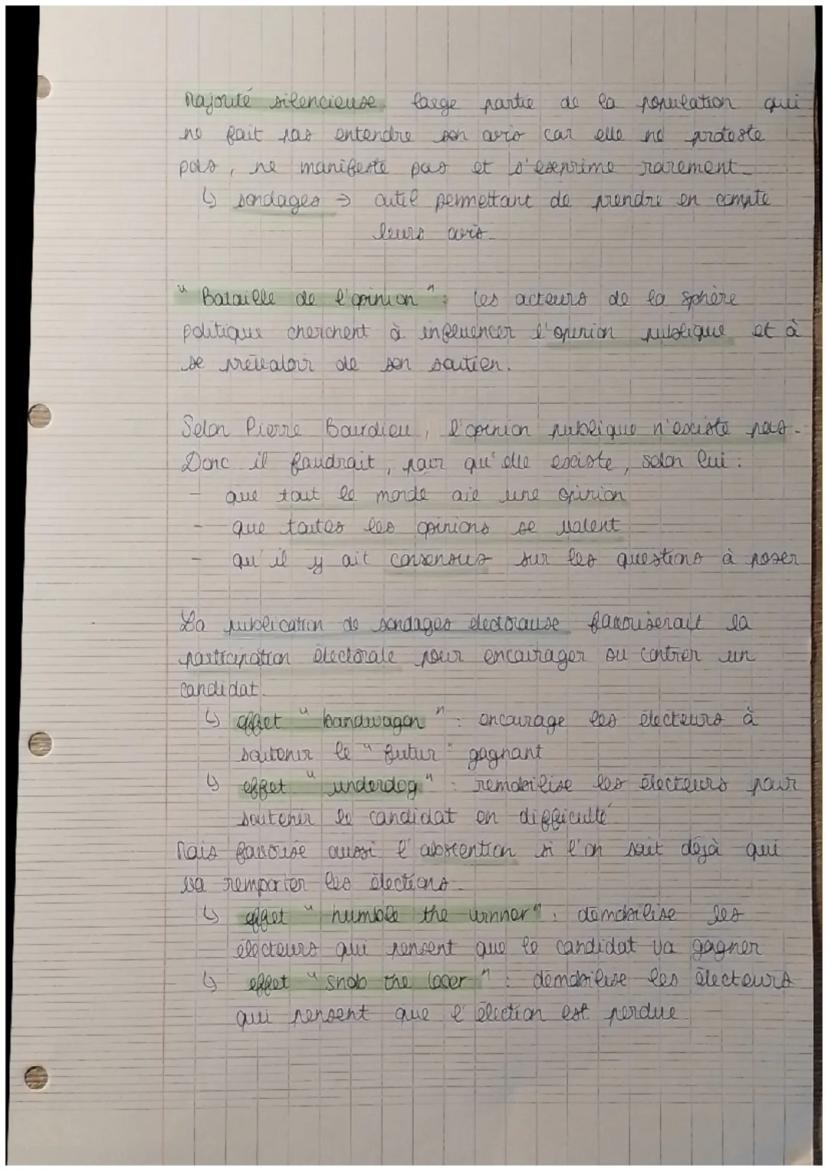 Majorité silencieuse large partie de la population qui
ne fait pas entendre son avis car elle ne proteste
pas, ne manifeste pas et s'exprime rarement.
↳ sondages → outil permettant de prendre en compte
leurs avis.
"Bataille de l'opinion" : les acteurs de la sphère
politique cherchent à influencer l'opinion publique et à
se prévaloir de son soutien.
Selon Pierre Bourdieu, l'opinion publique n'existe pas.
Donc il faudrait, pour qu'elle existe, selon lui :
- que tout le monde aie une opinion
- que toutes les opinions se valent
- qu'il y ait consensus sur les questions à poser
La publication de sondages électoraux favoriserait la
participation électorale pour encourager ou contrer un
candidat.
↳ effet "bandwagon" : encourage les électeurs à
soutenir le "futur" gagnant
↳ effet "underdog" : remobilise les électeurs pour
soutenir le candidat en difficulté
Mais favorise aussi l'abstention si l'on sait déjà qui
va remporter les élections.
↳ effet "humble the winner" : démobilise les
électeurs qui pensent que le candidat va gagner
↳ effet "snob the loser" : démobilise les électeurs
qui pensent que l'élection est perdue